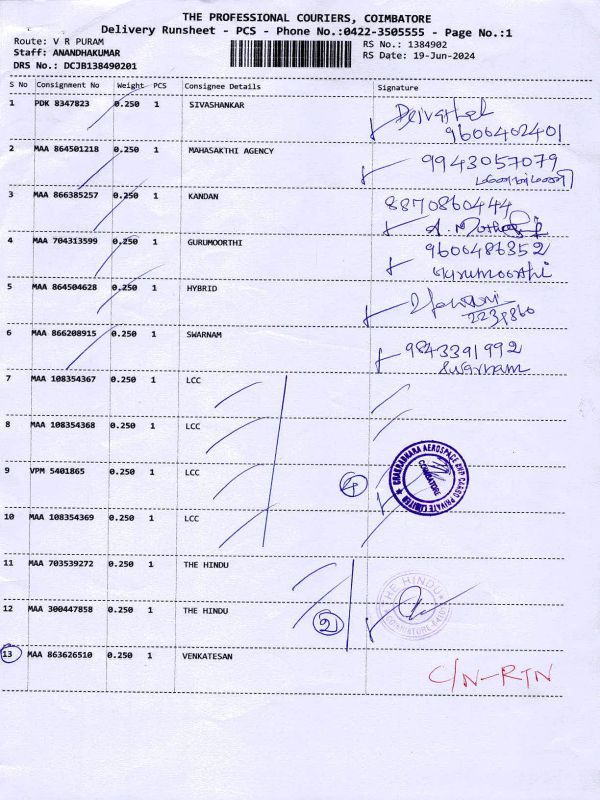 THE PROFESSIONAL COURIERS, COIMBATORE
Delivery Runsheet - PCS - Phone No.:0422-3505555 - Page No.:1
Route: V R PURAM RS No.: 1384902
Staff: ANANDHAKUMAR RS Date: 19-Jun-2024
DRS No.: DCJB138490201
S No Consignment No Weight PCS Consignee Details Signature
1 PDK 8347823 0.250 1 SIVASHANKAR
9600402401
2 MAA 864501218 0.250 1 MAHASAKTHI AGENCY 9943057079
3 MAA 866385257 0.250 1 KANDAN 8870860444
4 MAA 704313599 0.250 1 GURUMOORTHI 9600486352
Gurumoorthi
5 MAA 864504628 0.250 1 HYBRID
6 MAA 866208915 0.250 1 SWARNAM 9843391992
Swarnam
7 MAA 108354367 0.250 1 LCC
8 MAA 108354368 0.250 1 LCC
9 VPM 5401865 0.250 1 LCC 4 CHAKRADHARA AEROSPACE AND CARGO PRIVATE LIMITED COIMBATORE
10 MAA 108354369 0.250 1 LCC
11 MAA 703539272 0.250 1 THE HINDU
12 MAA 300447858 0.250 1 THE HINDU 2 THE HINDU COIMBATORE
13 MAA 863626510 0.250 1 VENKATESAN C/N-RTN